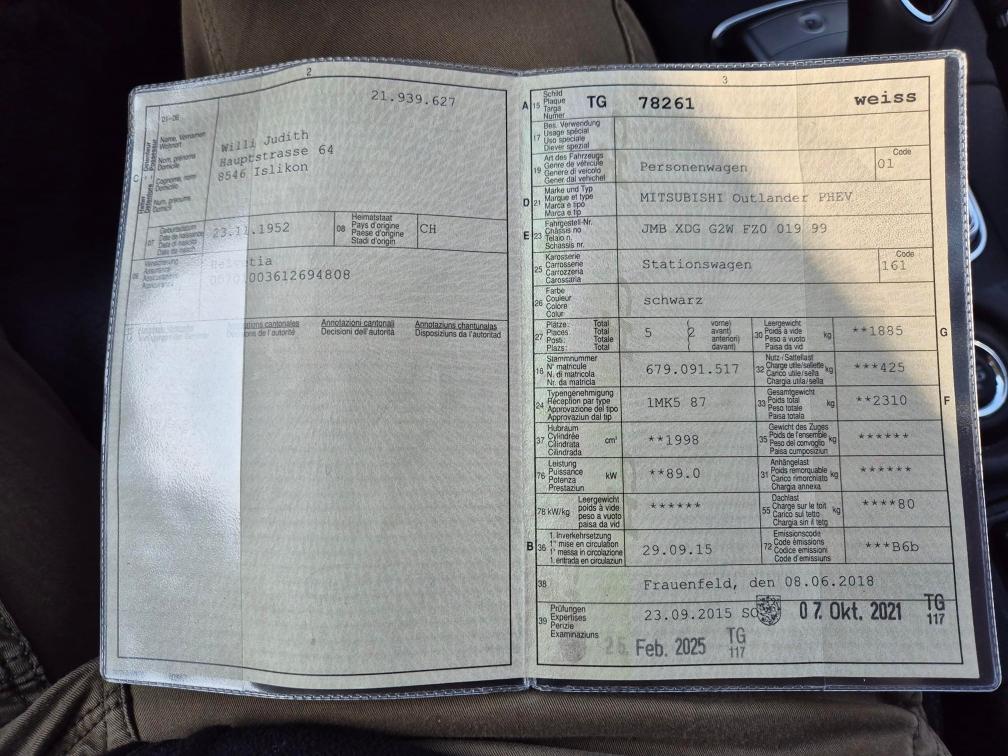 2
21.939.627
01-06
C
Name, Vornamen
Wohnort
Nom, prénoms
Domicile
Cognome, nomi
Domicilio
Num, prenums
Domicil
Willi Judith
Hauptstrasse 64
8546 Islikon
07
Geburtsdatum
Date de naissance
Data di nascita
Data da nasch.
23.11.1952
08
Heimatstaat
Pays d'origine
Paese d'origine
Stadi d'origin
CH
09
Versicherung
Assurance
Helvetia
003612694808
Annotations cantonales
Décisions de l'autorité
Annotazioni cantonali
Decisioni dell'autorità
Annotaziuns chantunalas
Disposiziuns da l'autoritad
3
A
15
Schild
Plaque
Targa
Numer
TG 78261
weiss
17
Bes. Verwendung
Usage spécial
Uso speciale
Diever spezial
19
Art des Fahrzeugs
Genre de véhicule
Genere di veicolo
Gener dal vehichel
Personenwagen
Code
01
D
21
Marke und Typ
Marque et type
Marca e tipo
Marca e tip
MITSUBISHI Outlander PHEV
E
23
Fahrgestell-Nr.
Châssis no
Telaio n.
Schassis nr.
JMB XDG G2W FZ0 019 99
25
Karosserie
Carrosserie
Carrozzeria
Carossaria
Stationswagen
Code
161
26
Farbe
Couleur
Colore
Colur
schwarz
27
Plätze: Total
Places: Total
Posti: Totale
Plazs: Total
5 (2
vorne)
avant)
anteriori)
davant)
30
Leergewicht
Poids à vide
Peso a vuoto
Paisa da vid
kg
**1885
G
18
Stammnummer
N° matricule
N. di matricola
Nr. da matricla
679.091.517
32
Nutz-/Sattellast
Charge utile/sellette
Carico utile/sella
Chargia utila/sella
kg
***425
24
Typengenehmigung
Réception par type
Approvazione del tipo
Approvaziun dal tip
1MK5 87
33
Gesamtgewicht
Poids total
Peso totale
Paisa totala
kg
**2310
F
37
Hubraum
Cylindrée
Cilindrata
Cilindrada
cm³
**1998
35
Gewicht des Zuges
Poids de l'ensemble
Peso del convoglio
Paisa cumposiziun
kg
******
76
Leistung
Puissance
Potenza
Prestaziun
kW
**89.0
31
Anhängelast
Poids remorquable
Carico rimorchiato
Chargia annexa
kg
******
78 kW/kg
Leergewicht
poids à vide
peso a vuoto
paisa da vid
******
55
Dachlast
Charge sur le toit
Carico sul tetto
Chargia sin il tetg
kg
****80
B
36
1. Inverkehrsetzung
1re mise en circulation
1a messa in circolazione
1. entrada en circulaziun
29.09.15
72
Emissionscode
Code émissions
Codice emissioni
Code d'emissiuns
***B6b
38
Frauenfeld, den 08.06.2018
39
Prüfungen
Expertises
Perizie
Examinaziuns
23.09.2015 SO
07. Okt. 2021
TG
117
25. Feb. 2025
TG
117